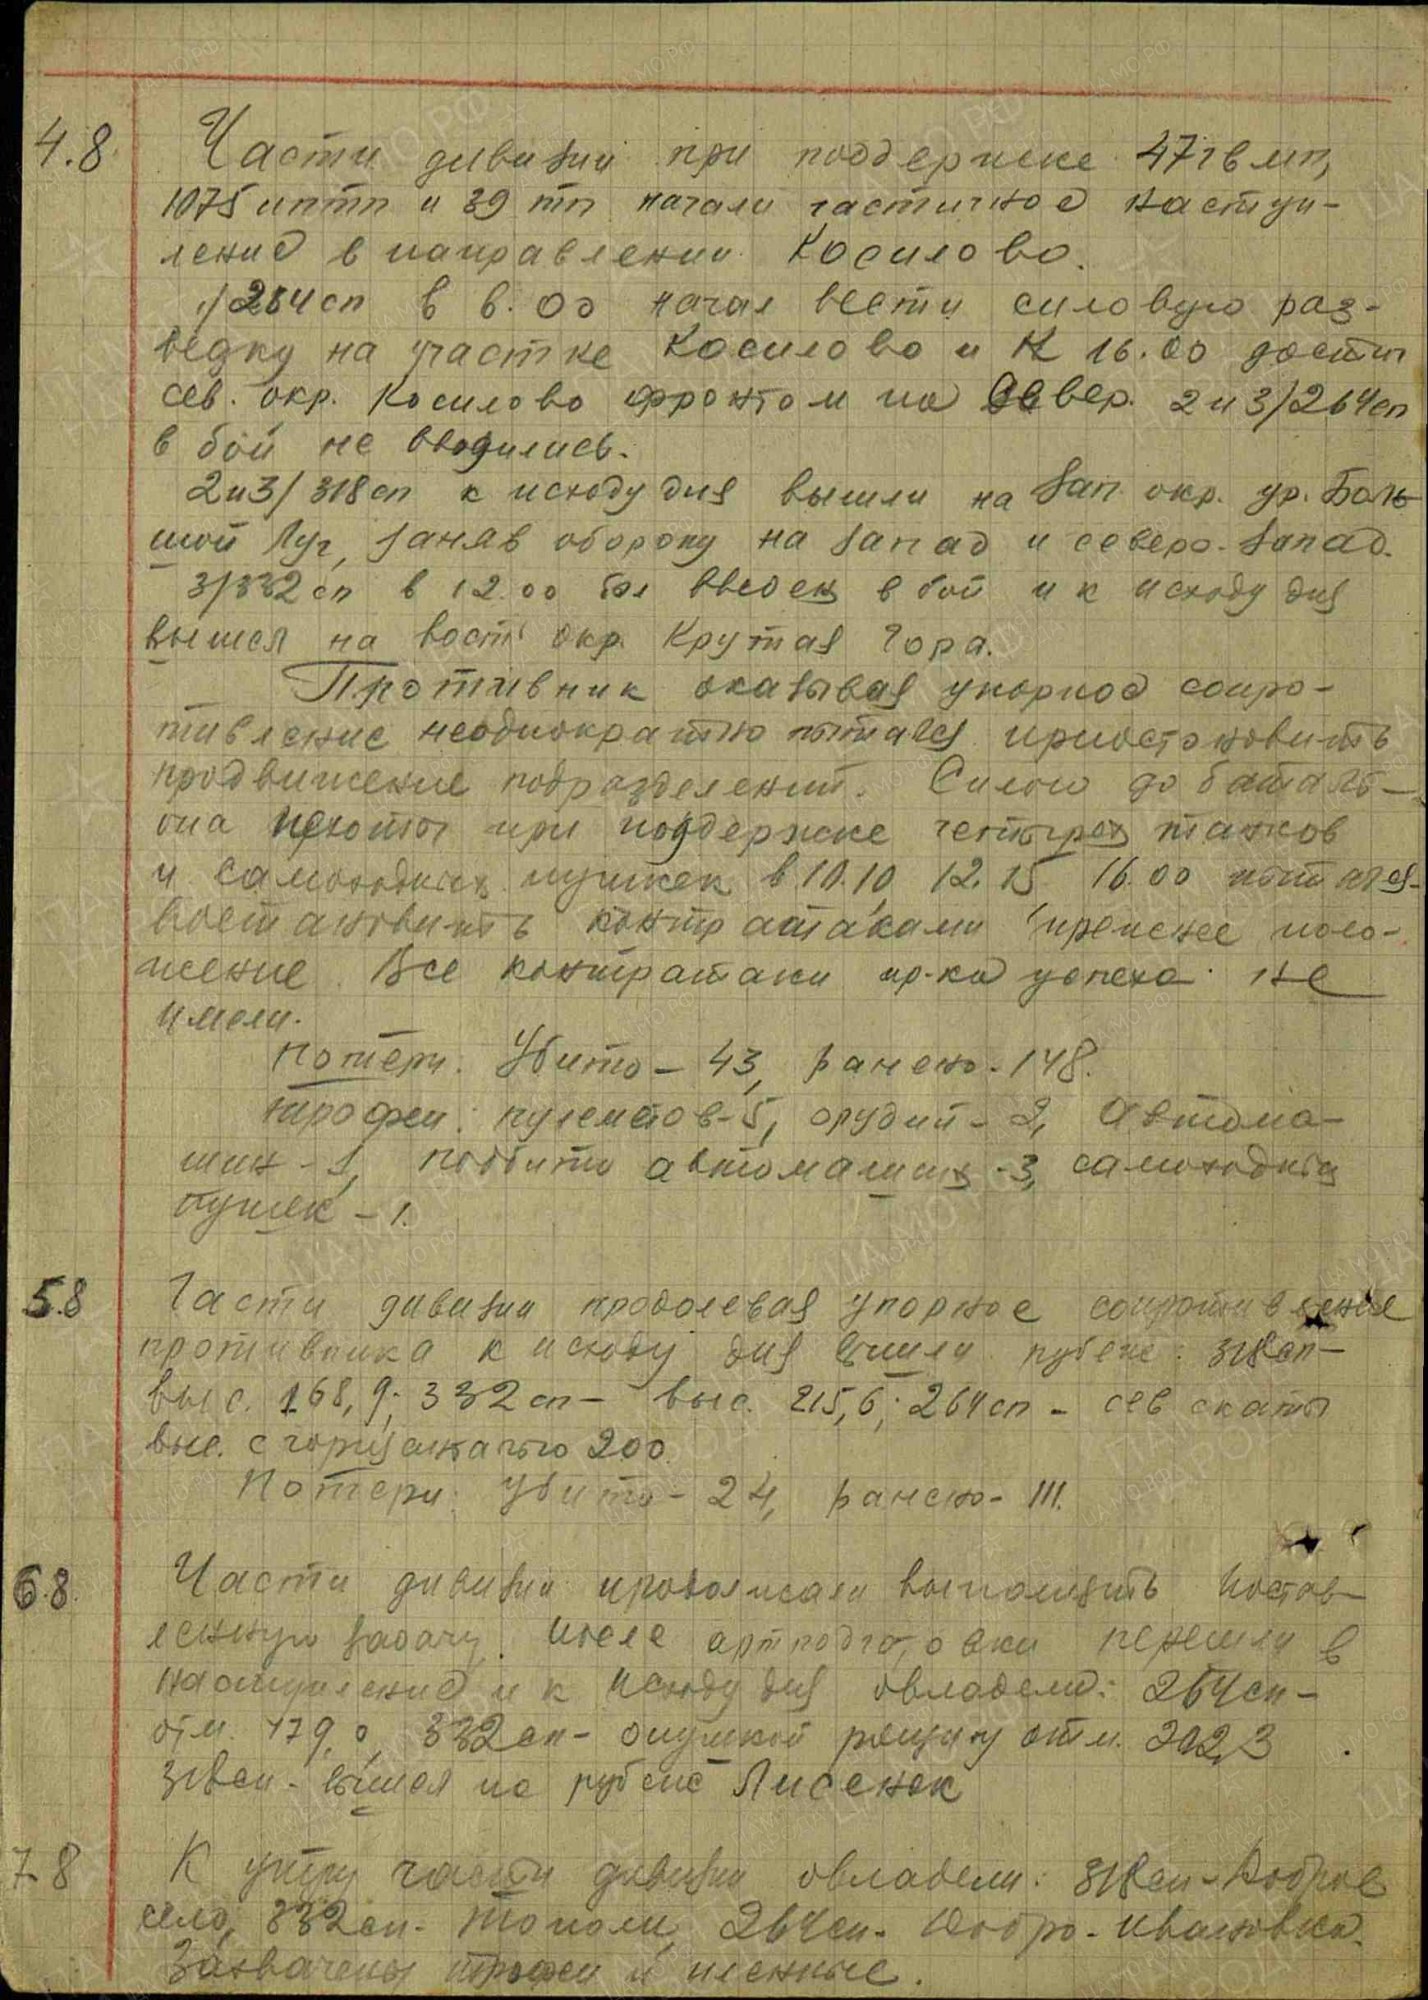 4.8 Части дивизии при поддержке 47 гв мп,
1075 иптп и 39 тп начали частичное наступ-
ление в направлении Косилово.
1/264 сп в 6.00 начал вести силовую раз-
ведку на участке Косилово и к 16.00 достиг
сев. окр. Косилово фронтом на север. 2 и 3/264 сп
в бой не вводились.
2 и 3/318 сп к исходу дня вышли на зап. окр. ур. Боль-
шой Луг, заняв оборону на запад и северо-запад.
3/332 сп в 12.00 был введен в бой и к исходу дня
вышел на вост. окр. Крутая Гора.
Противник оказывая упорное сопро-
тивление неоднократно пытался приостановить
продвижение подразделений. Силою до баталь-
она пехоты при поддержке четырех танков
и самоходных пушек в 10.10, 12.15 16.00 пытался
востановить контратаками прежнее поло-
жение. Все контратаки пр-ка успеха не
имели.
Потери: Убито - 43, ранено - 148.
Трофеи: пулеметов - 5, орудий - 2, автома-
шин - 1, подбито автомашин - 3, самоходных
пушек - 1.
5.8 Части дивизии продолевая упорное сопротивление
противника к исходу дня вышли рубеж: 318 сп -
выс. 168,9; 332 сп - выс. 215,6; 264 сп - сев скаты
выс. с горизанталью 200.
Потери: Убито - 24, ранено - 111.
6.8 Части дивизии продолжали выполнять постав-
ленную задачу. После артподготовки перешли в
наступление и к исходу дня овладели: 264 сп -
отм. 179,0, 332 сп - опушкой рощи у отм. 202,3
318 сп - вышел на рубеж Лисенок
7.8 К утру части дивизии овладели: 318 сп - Доброе
село, 332 сп - Тополи, 264 сп - Добро-Ивановка.
Захвачены трофеи и пленные.